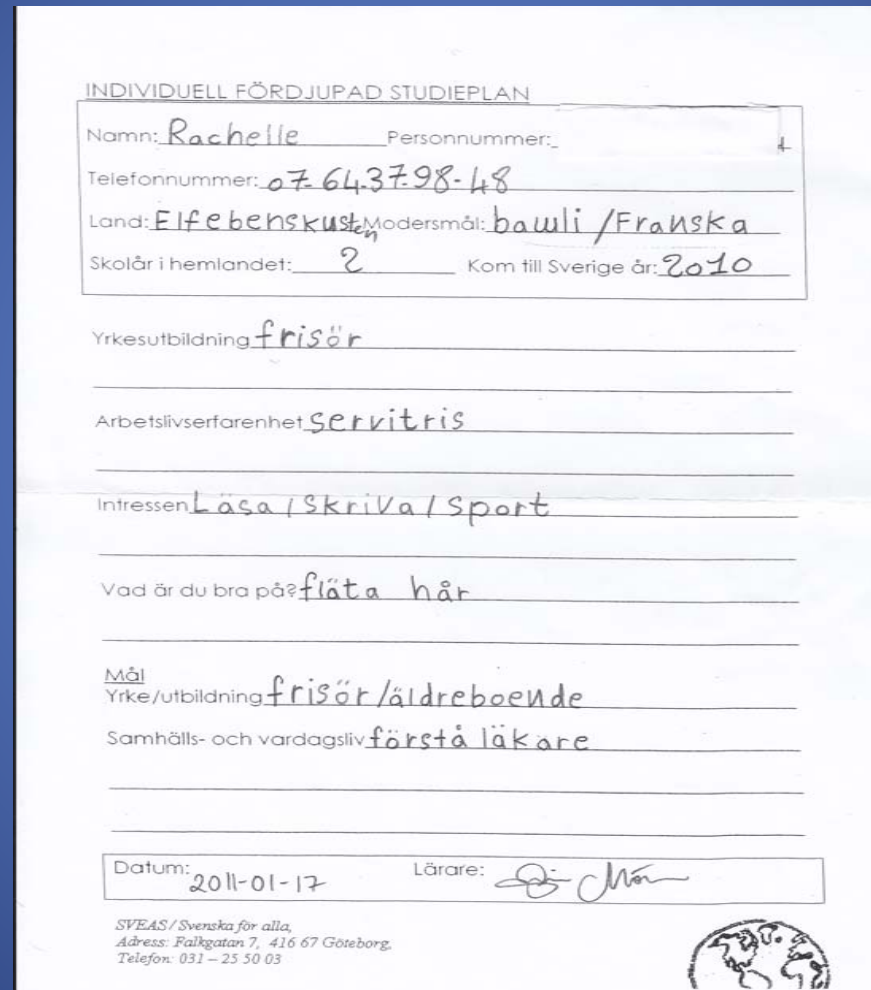 INDIVIDUELL FÖRDJUPAD STUDIEPLAN
Namn: Rachelle Personnummer:
Telefonnummer: 07-64.37.98-48
Land: Elfebenskusten Modersmål: bawli /Franska
Skolår i hemlandet: 2 Kom till Sverige år: 2010
Yrkesutbildning frisör
Arbetslivserfarenhet servitris
Intressen Läsa / Skriva / Sport
Vad är du bra på? fläta hår
Mål
Yrke/utbildning frisör /äldreboende
Samhälls- och vardagsliv förstå läkare
Datum: 2011-01-17 Lärare:
SVEAS / Svenska för alla,
Adress: Falkgatan 7, 416 67 Göteborg,
Telefon: 031 – 25 50 03